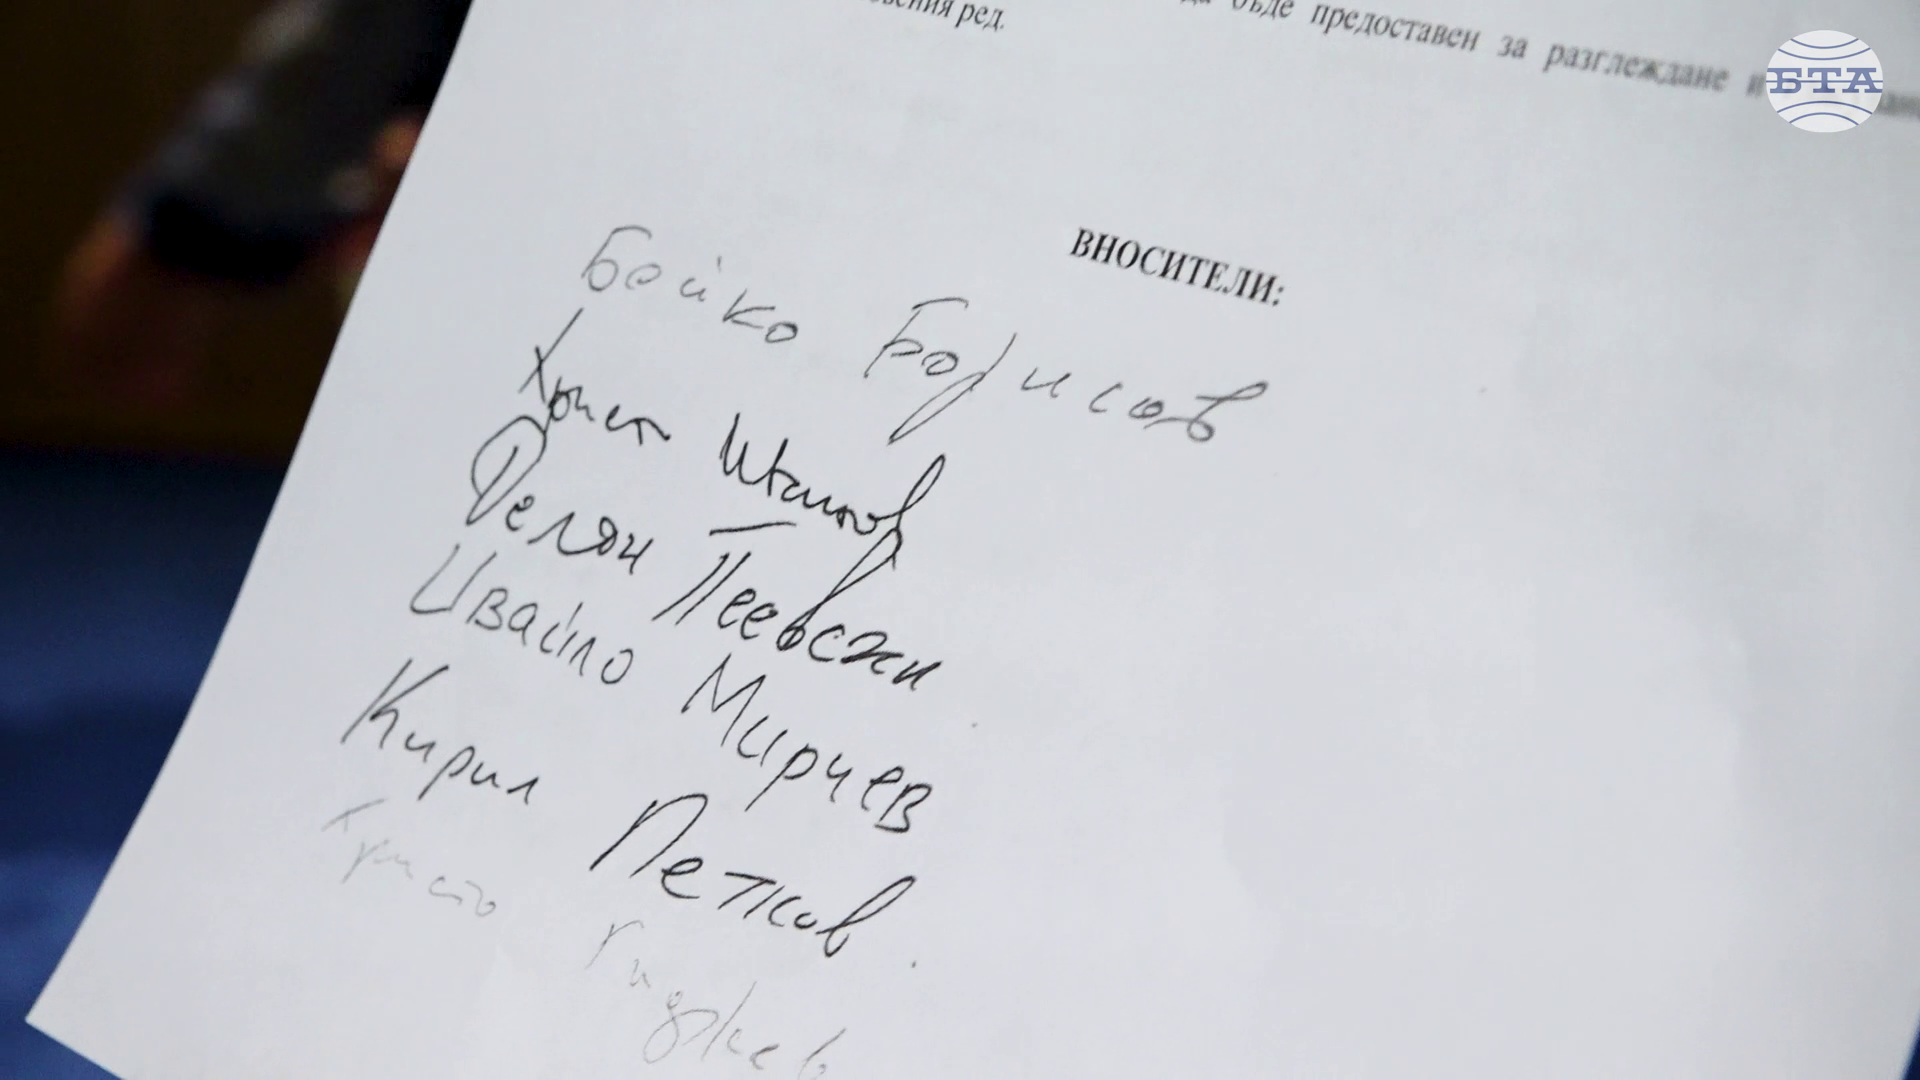 да бъде предоставен за разглеждане и
ред.
БТА
ВНОСИТЕЛИ:
Бойко Борисов
Христ
Делян Пеевски
Ивайло Мирчев
Кирил Петков.
Гиджев